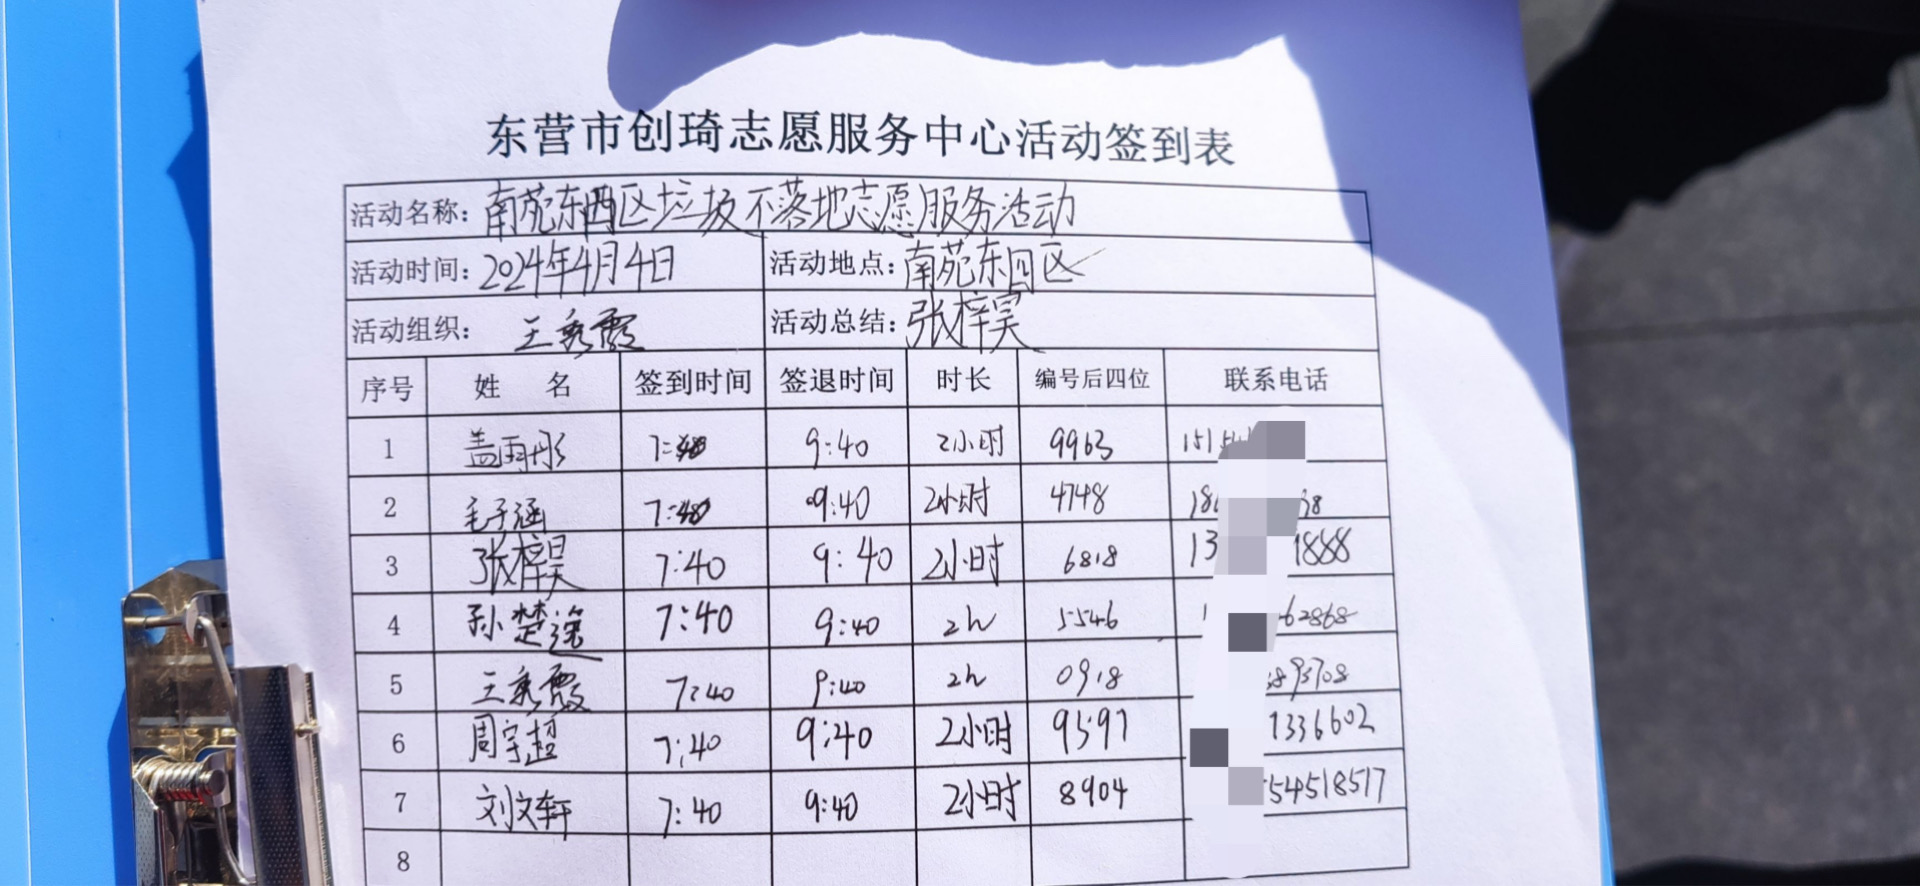 东营市创琦志愿服务中心活动签到表
活动名称: 南苑东西区垃圾不落地志愿服务活动
活动时间: 2024年4月4日 活动地点: 南苑东四区
活动组织: 王秀霞 活动总结: 张梓昊
序号 姓 名 签到时间 签退时间 时长 编号后四位 联系电话
1 盖雨彤 7:40 9:40 2小时 9963 151
2 毛子涵 7:40 9:40 2小时 4748 18 8
3 张梓昊 7:40 9:40 2小时 6818 13 1888
4 孙楚涵 7:40 9:40 2h 5546 1 62868
5 王秀霞 7:40 9:40 2h 0918 893708
6 周宇超 7:40 9:40 2小时 9597 1336602
7 刘文轩 7:40 9:40 2小时 8904 54518517
8